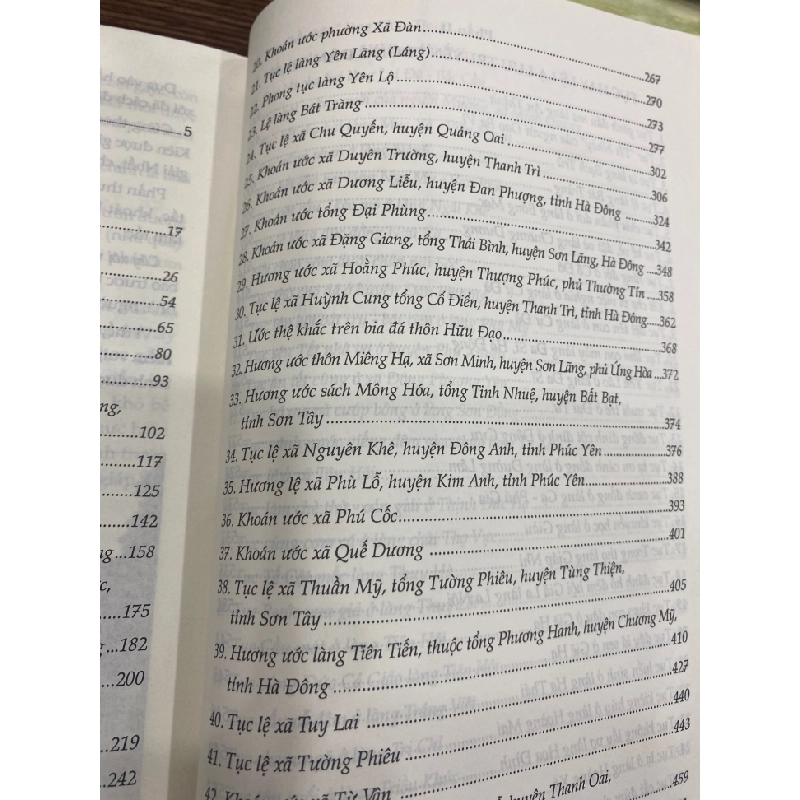 5
17
26
54
65
80
93
ng,
102
117
125
142
g...158
c,
175
g.....182
200
219
242
20. Khoán ước phường Xã Đàn.....267
21. Tục lệ làng Yên Lãng (Láng).....270
22. Phong tục làng Yên Lộ.....273
23. Lệ làng Bát Tràng.....277
24. Tục lệ xã Chu Quyến, huyện Quảng Oai.....302
25. Khoán ước xã Duyên Trường, huyện Thanh Trì.....306
26. Khoán ước xã Dương Liễu, huyện Đan Phượng, tỉnh Hà Đông.....324
27. Khoán ước tổng Đại Phùng.....342
28. Khoán ước xã Đặng Giang, tổng Thái Bình, huyện Sơn Lãng, Hà Đông.....348
29. Hương ước xã Hoằng Phúc, huyện Thượng Phúc, phủ Thường Tín.....358
30. Tục lệ xã Huỳnh Cung tổng Cổ Điển, huyện Thanh Trì, tỉnh Hà Đông.....362
31. Ước thệ khắc trên bia đá thôn Hữu Đạo.....368
32. Hương ước thôn Miêng Hạ, xã Sơn Minh, huyện Sơn Lãng, phủ Ứng Hòa ...372
33. Hương ước sách Mông Hóa, tổng Tinh Nhuệ, huyện Bất Bạt,
tỉnh Sơn Tây.....374
34. Tục lệ xã Nguyên Khê, huyện Đông Anh, tỉnh Phúc Yên.....376
35. Hương lệ xã Phù Lỗ, huyện Kim Anh, tỉnh Phúc Yên.....388
36. Khoán ước xã Phú Cốc.....393
37. Khoán ước xã Quế Dương.....401
38. Tục lệ xã Thuần Mỹ, tổng Tường Phiêu, huyện Tùng Thiện,
tỉnh Sơn Tây.....405
39. Hương ước làng Tiên Tiến, thuộc tổng Phương Hanh, huyện Chương Mỹ,
tỉnh Hà Đông.....410
40. Tục lệ xã Tuy Lai.....427
41. Tục lệ xã Tường Phiêu.....440
42. Khoán ước xã Từ Vân.....443
huyện Thanh Oai,
459